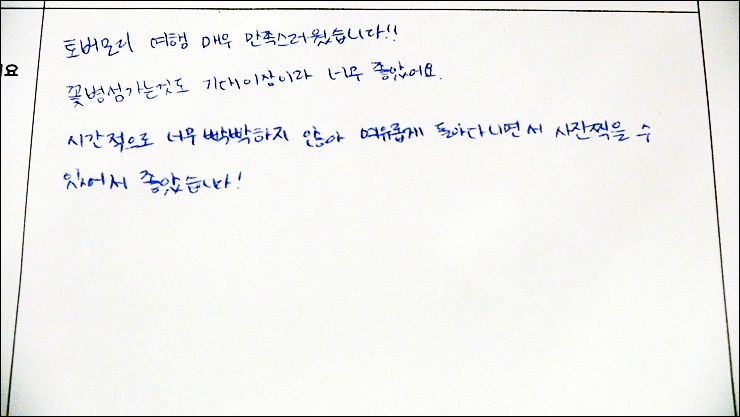 토버모리 여행 매우 만족스러웠습니다!!
꽃병섬가는것도 기대이상이라 너무 좋았어요.
시간적으로 너무 빡빡하지 않아 여유롭게 돌아다니면서 사진찍을 수
있어서 좋았습니다!